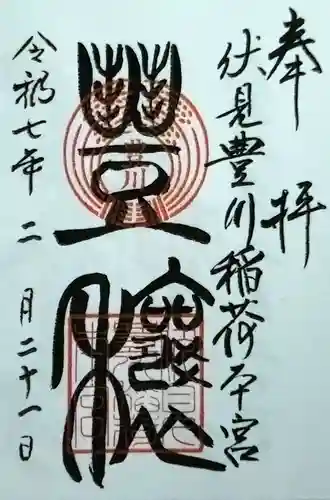 奉拝
伏見豊川稲荷本宮
豊穣
令和七年二月二十一日
豊川